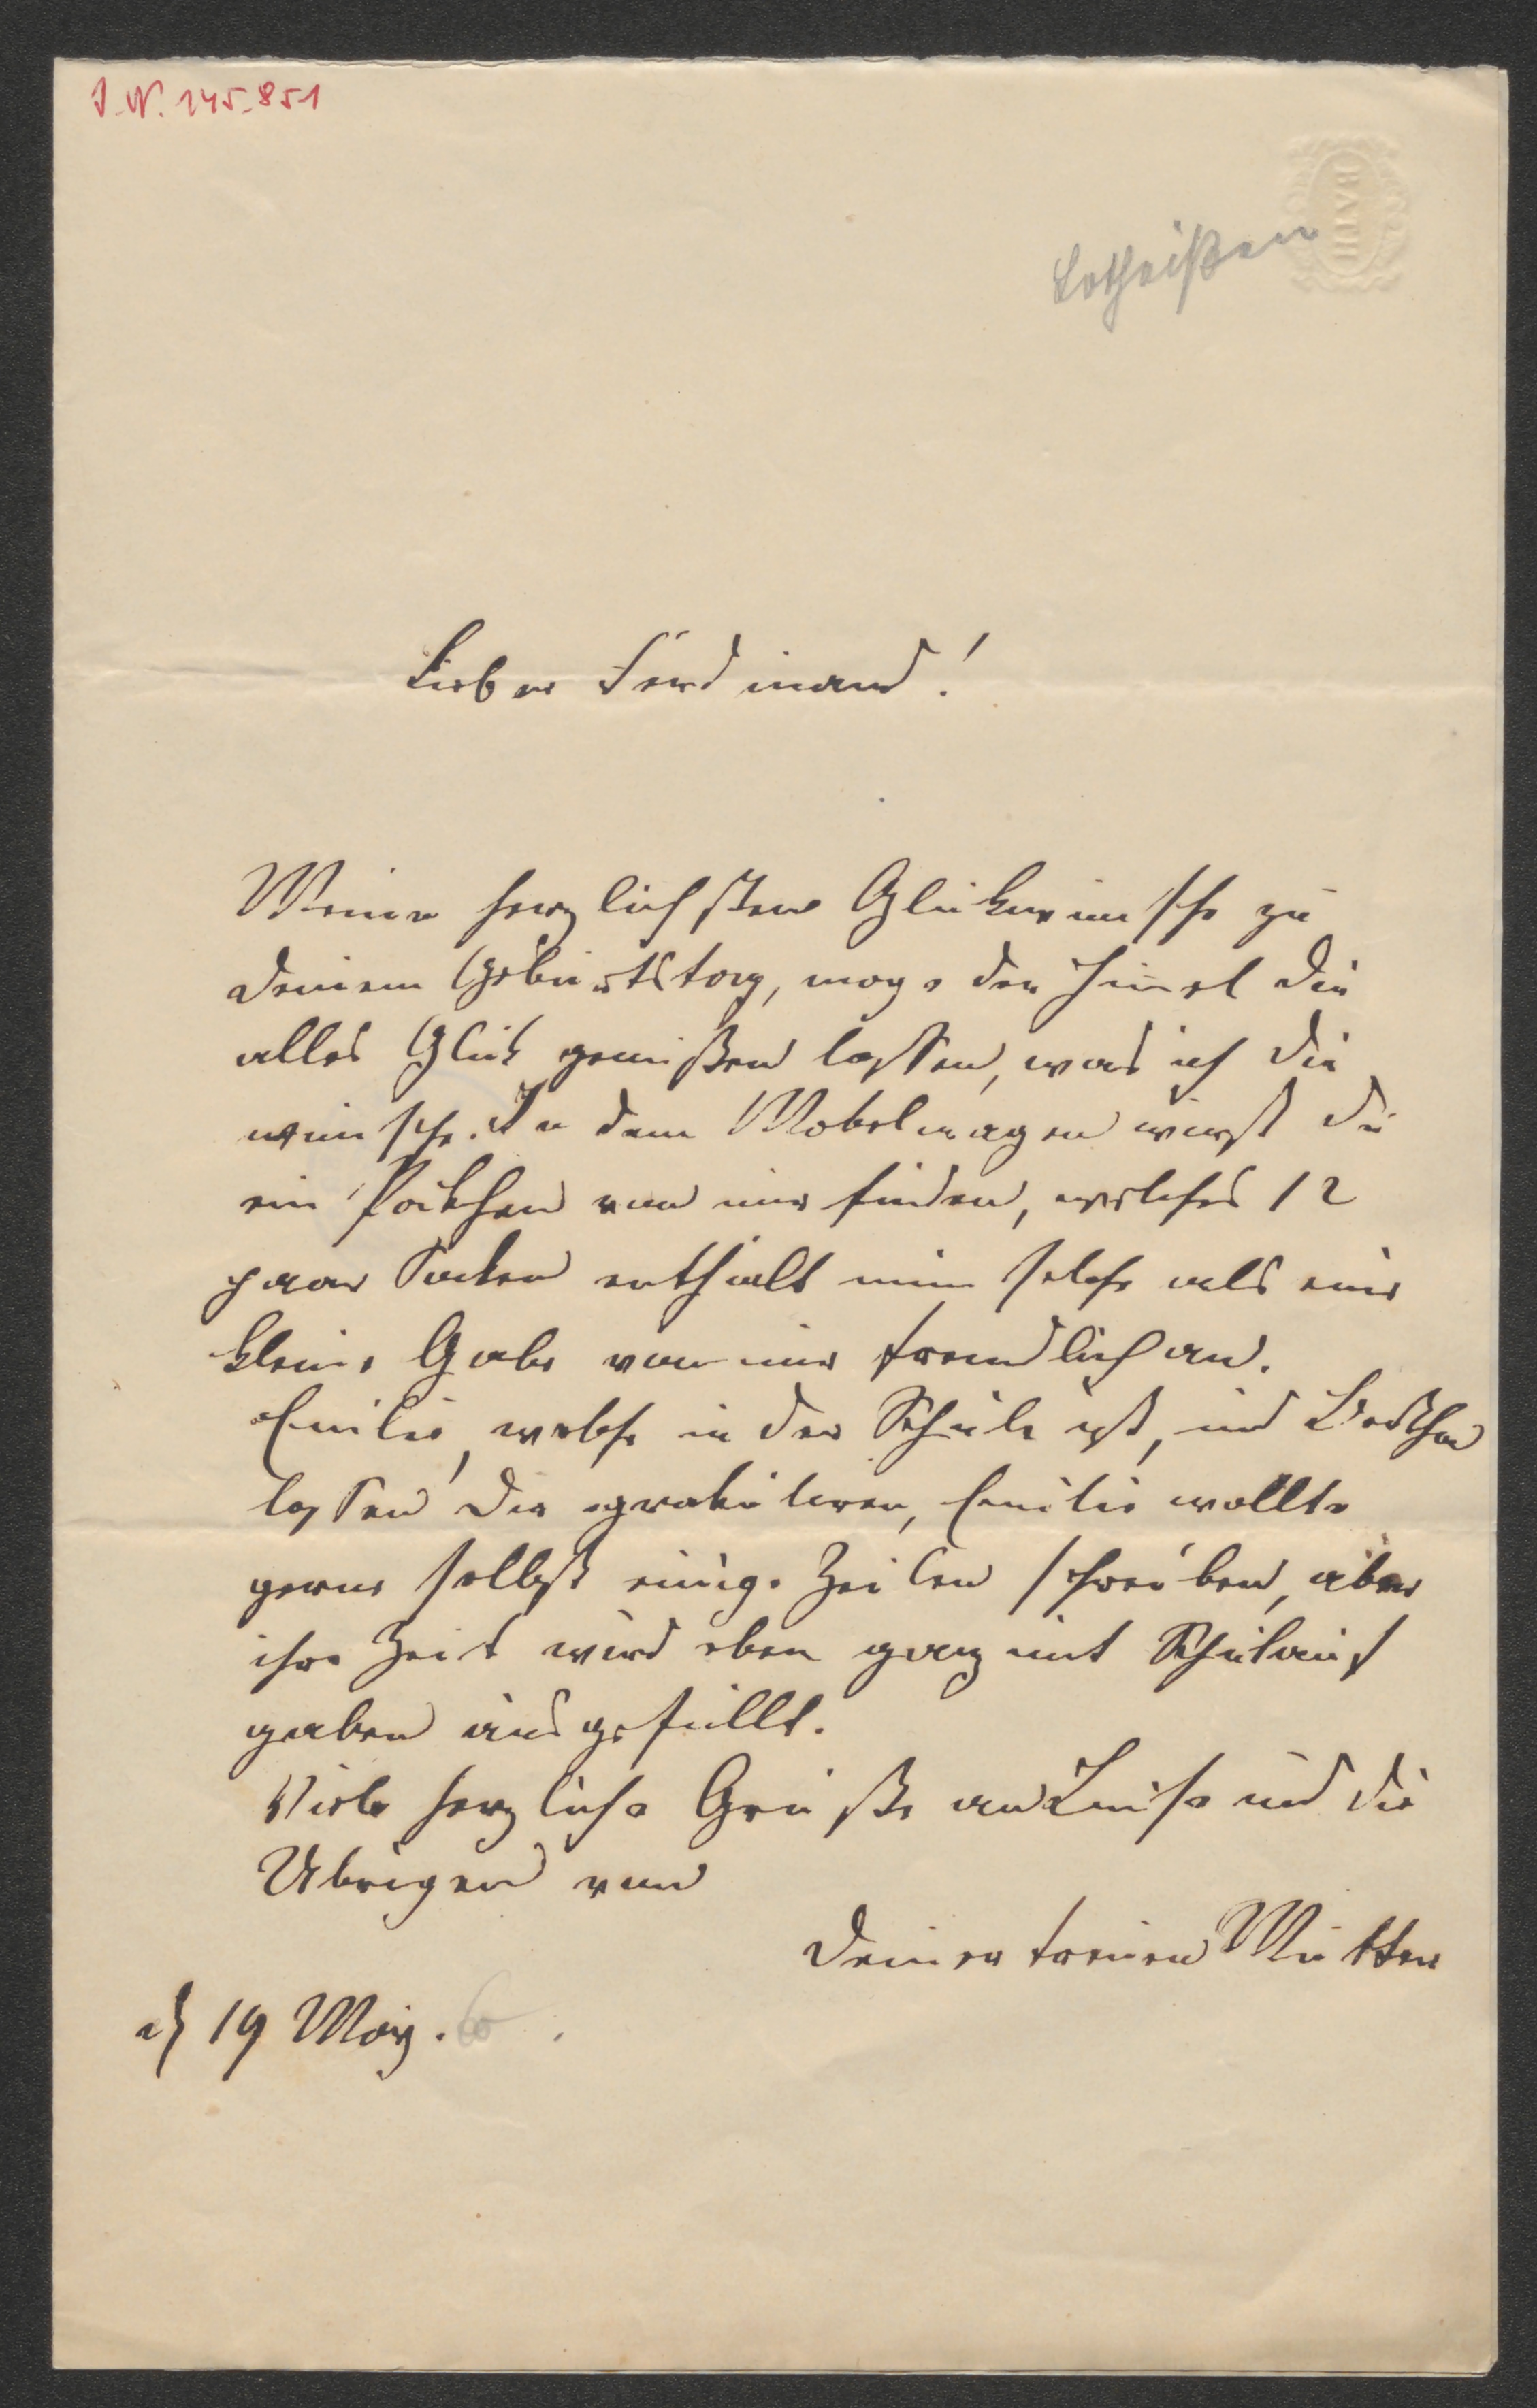 I.N. 145.851
BATH
Lotheißen
Lieber Ferdinand!
Meine herzlichsten Glükwünsche zu
Deinem Geburtstag, moge der Himel Dir
alles Glük genißen lassen, was ich Dir
wünsche. In dem Mobelwagen wirst Du
ein Päckchen von mir finden, welches 12
paar Socken enthält nim solche als eine
kleine Gabe von mir freundlich an.
Emilie, welche in der Schule ist, und Bertha
lassen Dir gratuliren, Emilie wollte
gerne selbst einige Zeilen schreiben, aber
ihre Zeit wird eben ganz mit Schulauf
gaben ausgefüllt.
Viele herzliche Grüße an Luise und die
Ubrigen von
Deiner treuen Mutter
19 May.